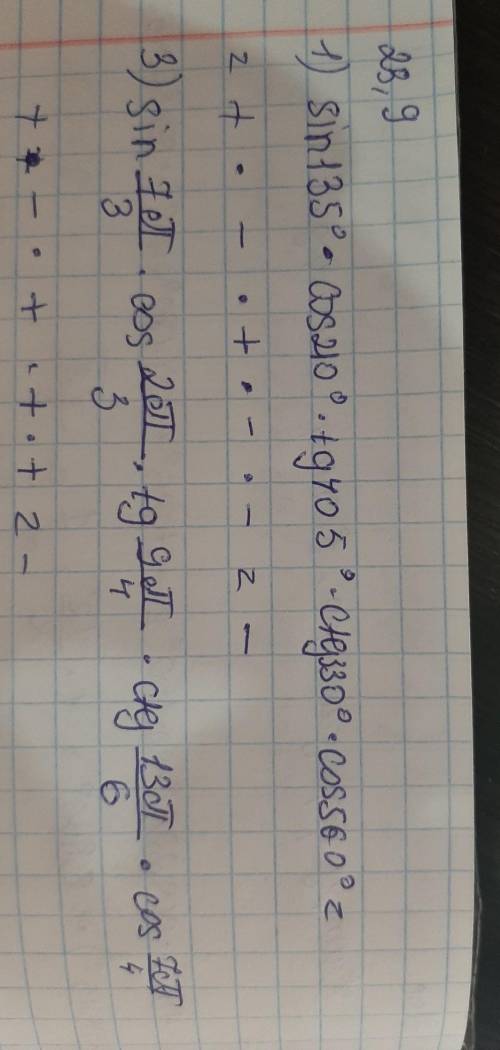 23,9
1) sin135° · cos210° · tg405° · ctg330° · cos560° =
= + · - · + · - · - = -
3) sin 7π/3 · cos 2π/3 · tg 9π/4 · ctg 13π/6 · cos 7π/4
+ · - · + · + · + = -